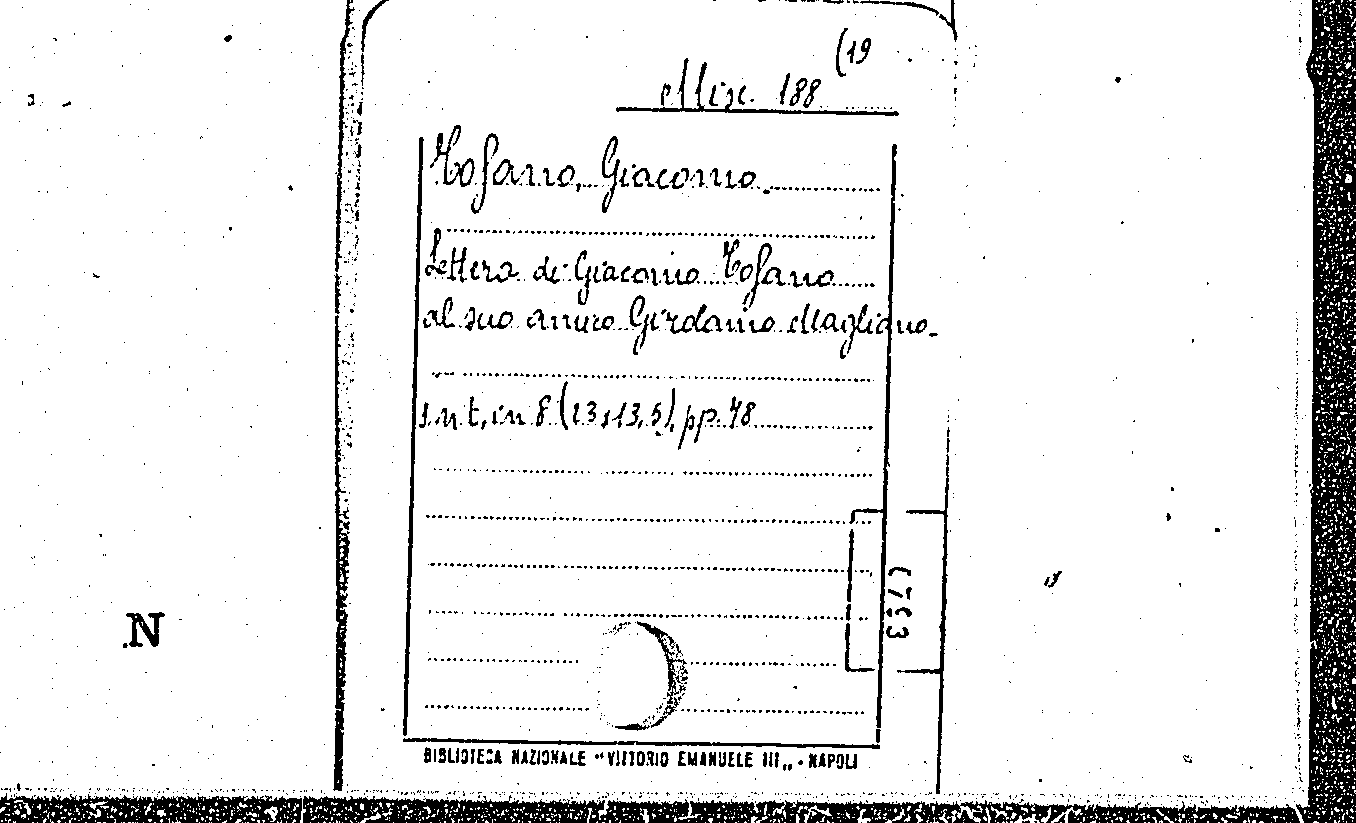 (19
Misc. 188
Tofano, Giacomo.
Lettera di Giacomo Tofano
al suo amico Girolamo Magliano.
s.n.t., in 8 (23x13,5), pp. 78
N
BIBLIOTECA NAZIONALE "VITTORIO EMANUELE III" - NAPOLI